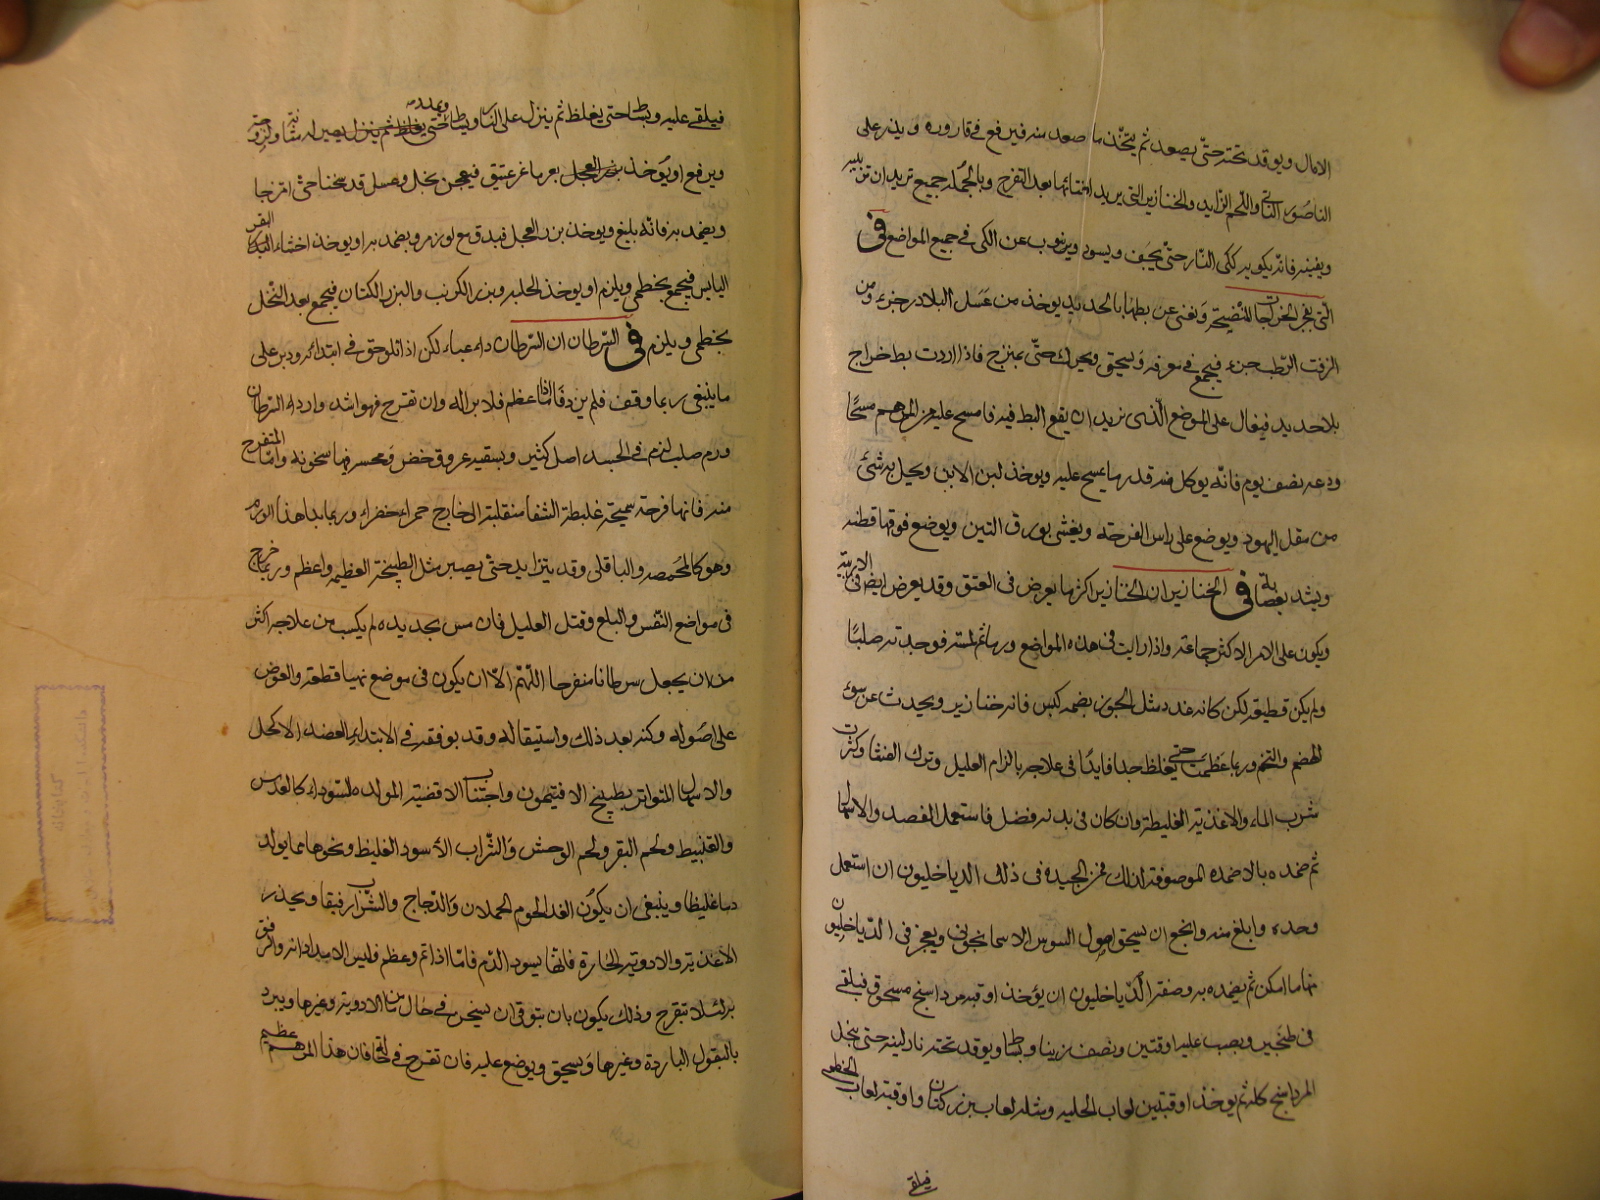 الامال ويوقد تحته حتّى يصعد ثم يتخّذ ما صعد منه فيرفع فى قاروره ويذر على
الناصور الناتى واللّحم الزّايد والخنازير التى يريد افنائها بعد التقرح وبالجمُله جميع تريد ان تبليه
ويفنيه فانّه يكويه ككى النّار حتّى يجيف ويسود وينوب عن الكى فى جميع المواضع فى
الّتى يفجر الخراجات للنّضيجة وَيغنى عن بطها بالحديد يوخذ من عَسَل البلادر جزء ومن
الزفت الرّطب جزء فيجمع فى مغرفه وَيسحق ويحرك حتّى يمتزج فاذا اردت بط خراج
بلا حديد فيقال على الموضع الّذى تريد ان يقع البط فيه فامسح عليه من المرهم مسحًا
ودعه نصف يوم فانّه يوكل منه قدر ما يمسح عليه ويوخذ لبن الاتن ويحل به شئ
من مقل اليهود ويوضع على راس القرحة ويغشى بورق التين ويوضع فوقها قطنه
ويشد بعصابة فى الخنازير ان الخنازير اكثرها يعرض فى العنق وقد يعرض ايضا فى الاربية
ويكون على الامر الاكثر جماعة واذا رايت فى هذه المواضع ورما ثم لمسته فوجدته صلبًا
ولم يكن قط يوقه لكن كانه غدد مثل الجوز يضمه كيس فانه خنازير ويحدث عن سوء
الهضم والتخم وربما عَظمَت حتى يغلظ جدا فابدًا فى علاجه بالزام العليل وترك العشا وكثرت
شرب الماء والاغذية الغليظة وان كان فى بدنه فضل فاستعمل الفصد والاسهال
ثم ضمده بالاضمده الموصوفة لذلك فمن الجيده فى ذلك الدياخليون ان استعمل
وحده وابلغ منه وانجع ان يسحق اصول السوس الاسمانجونى ويعجن فى الدّياخليون
نهاما امكن ثم يضمده به وصفة الدّياخليون ان يؤخذ اوقيه مرداسنج مسحوق فيلقى
فى طنجير ويصب عليه اوقتين ونصف زيتا وبطا ويوقد تحته نار لينه حتى ينحل
المرداسنج كله ثم يوخذ اوقيتين لعاب الحلبه ومثله لعاب بزر كتان واوقية لعاب الخطمى
فيلقى
فيلقى عليه ويساط حتى يغلظ ثم ينزل على النار ويساط حتى
ويرفع او يُوخذ بعر ماعز عتيق فيعجن بخل وعسل قد سخنا حتى امتزجا
ويضمد به فانّه بليغ ويوخذ بزر الفجل فيدق مع لوز مر ويضمد به او يوخذ اخثاء البقر
اليابس فيجمع بخطمى ويلزم او يوخذ الحلبه وبزر الكرنب والبزر الكتان فيجمع بعد النّخل
بخطمى ويلزم فى السّرطان ان السّرطان داء عياء لكن اذا تلوحق فى ابتدائه ودبر على
ما ينبغى ربما وقف فلم يزد فَامّا اذا عظم فلا برء له وان تقرح فهو اشد وارداء السّرطان
ورم صلب لزم فى الجسد اصل كثير ويسقيه عروق خضر وَيحس فيها سخونه وامّا المتقرح
منه فانها قرحة سمجة غليظة الشفا منقلبة الى خارج حمراء خضراء وربما بدا هذا الورم
وهو كالحمصه والباقلى وقد يتزايد حتى يصير مثل البطيخة العظيمه واعظم وربما خرج
فى مواضع النّفس والبلع وقتل العليل فان مس بحديده لم يكسب من علاجه اكثر
من ان يجعل سرطانا متقرحا اللّهم الّا ان يكون فى موضع تهيا قطعة والغوص
على اصُوله وكيه بعد ذلك واستيقاله وقد يوقفه فى الابتداء الفصد الاكحل
والاسهال المتواتر بطبيخ الافتيمون واجتناب الاغذية المولده للسوداء كالعدس
والقنبيط ولحم البقر ولحم الوحش وَالشّراب الأسود الغليظ ونحوها مما يولد
دما غليظا وينبغى ان يكوُن الغذا لحوم الحملان وَالدّجاج والشراب رقيقا ويحذر
الاغذية والادوية الحارة فانها يسود الدّم فامّا اذا تم وعظم فليس الا مداراته والرفق
به لئلا تتقرح وذلك يكون بان يتوقى ان يسخن فى حال من الادوية وغيرها ويبرد
بالبقول الباردة وغيرها وَيسحق ويوضع عليه فان تقرح فى فان هذا المرهم عظيم